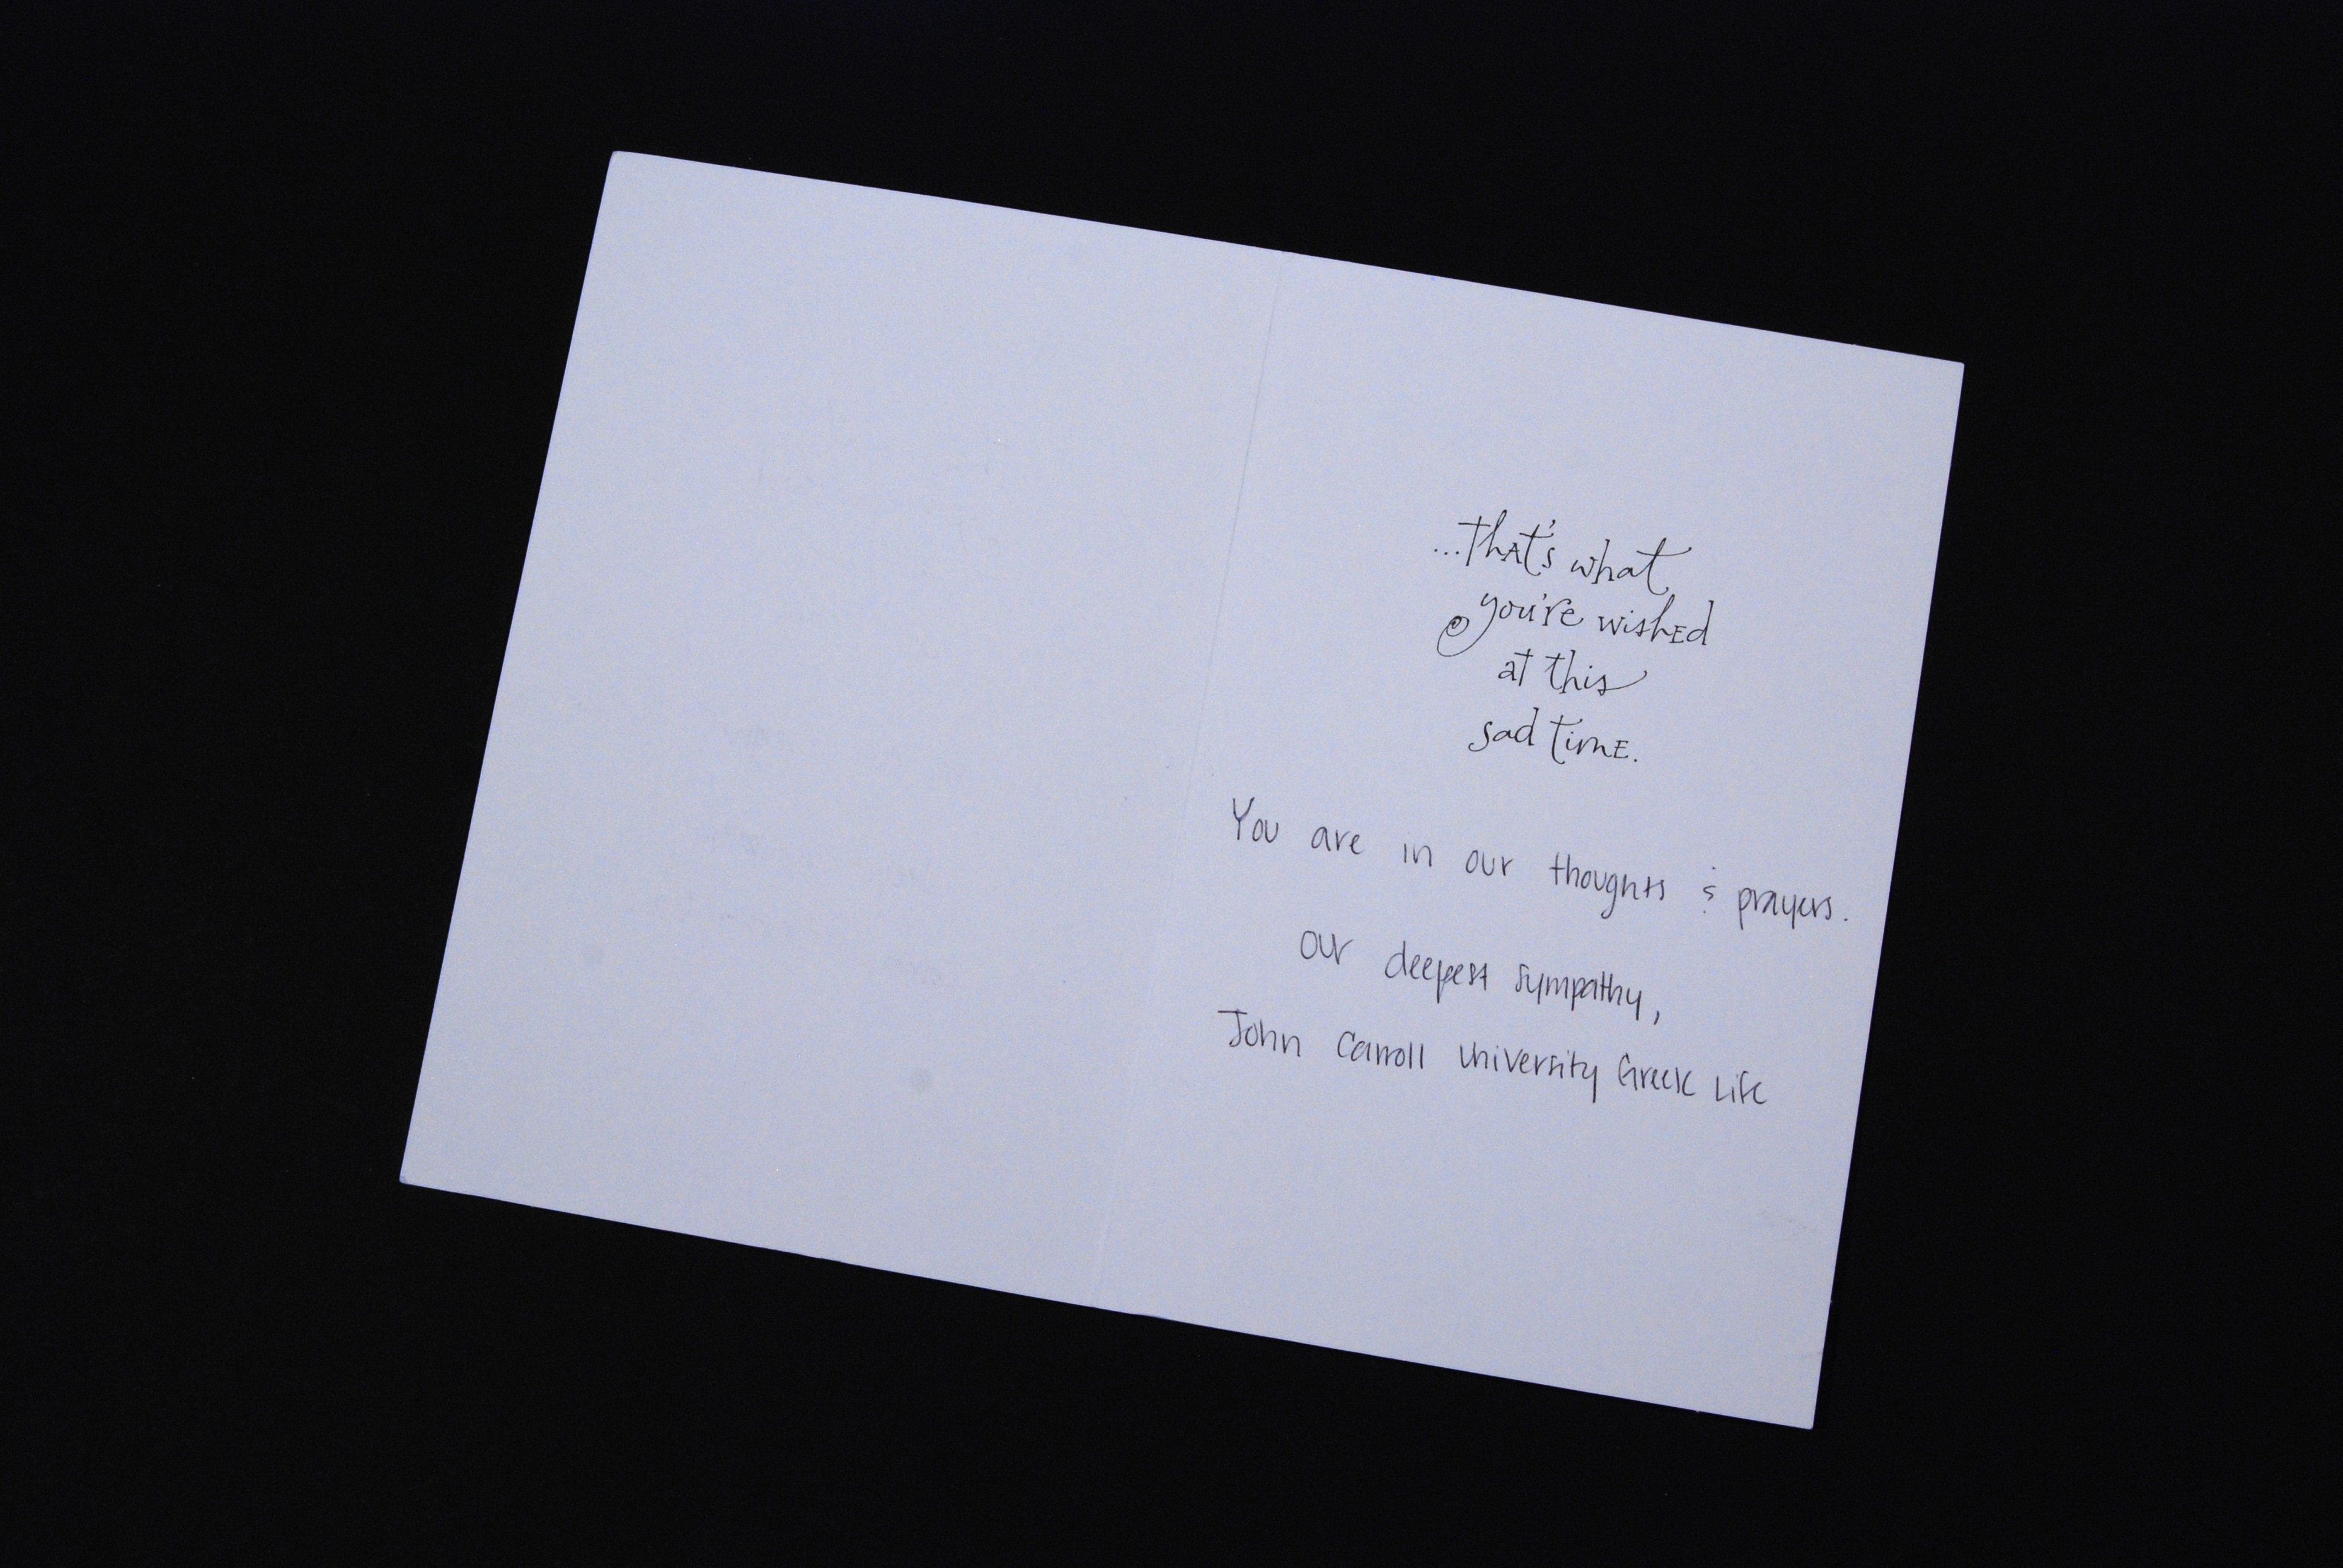 ...that's what
you're wished
at this
sad time.
You are in our thoughts & prayers.
Our deepest sympathy,
John Carroll University Greek Life